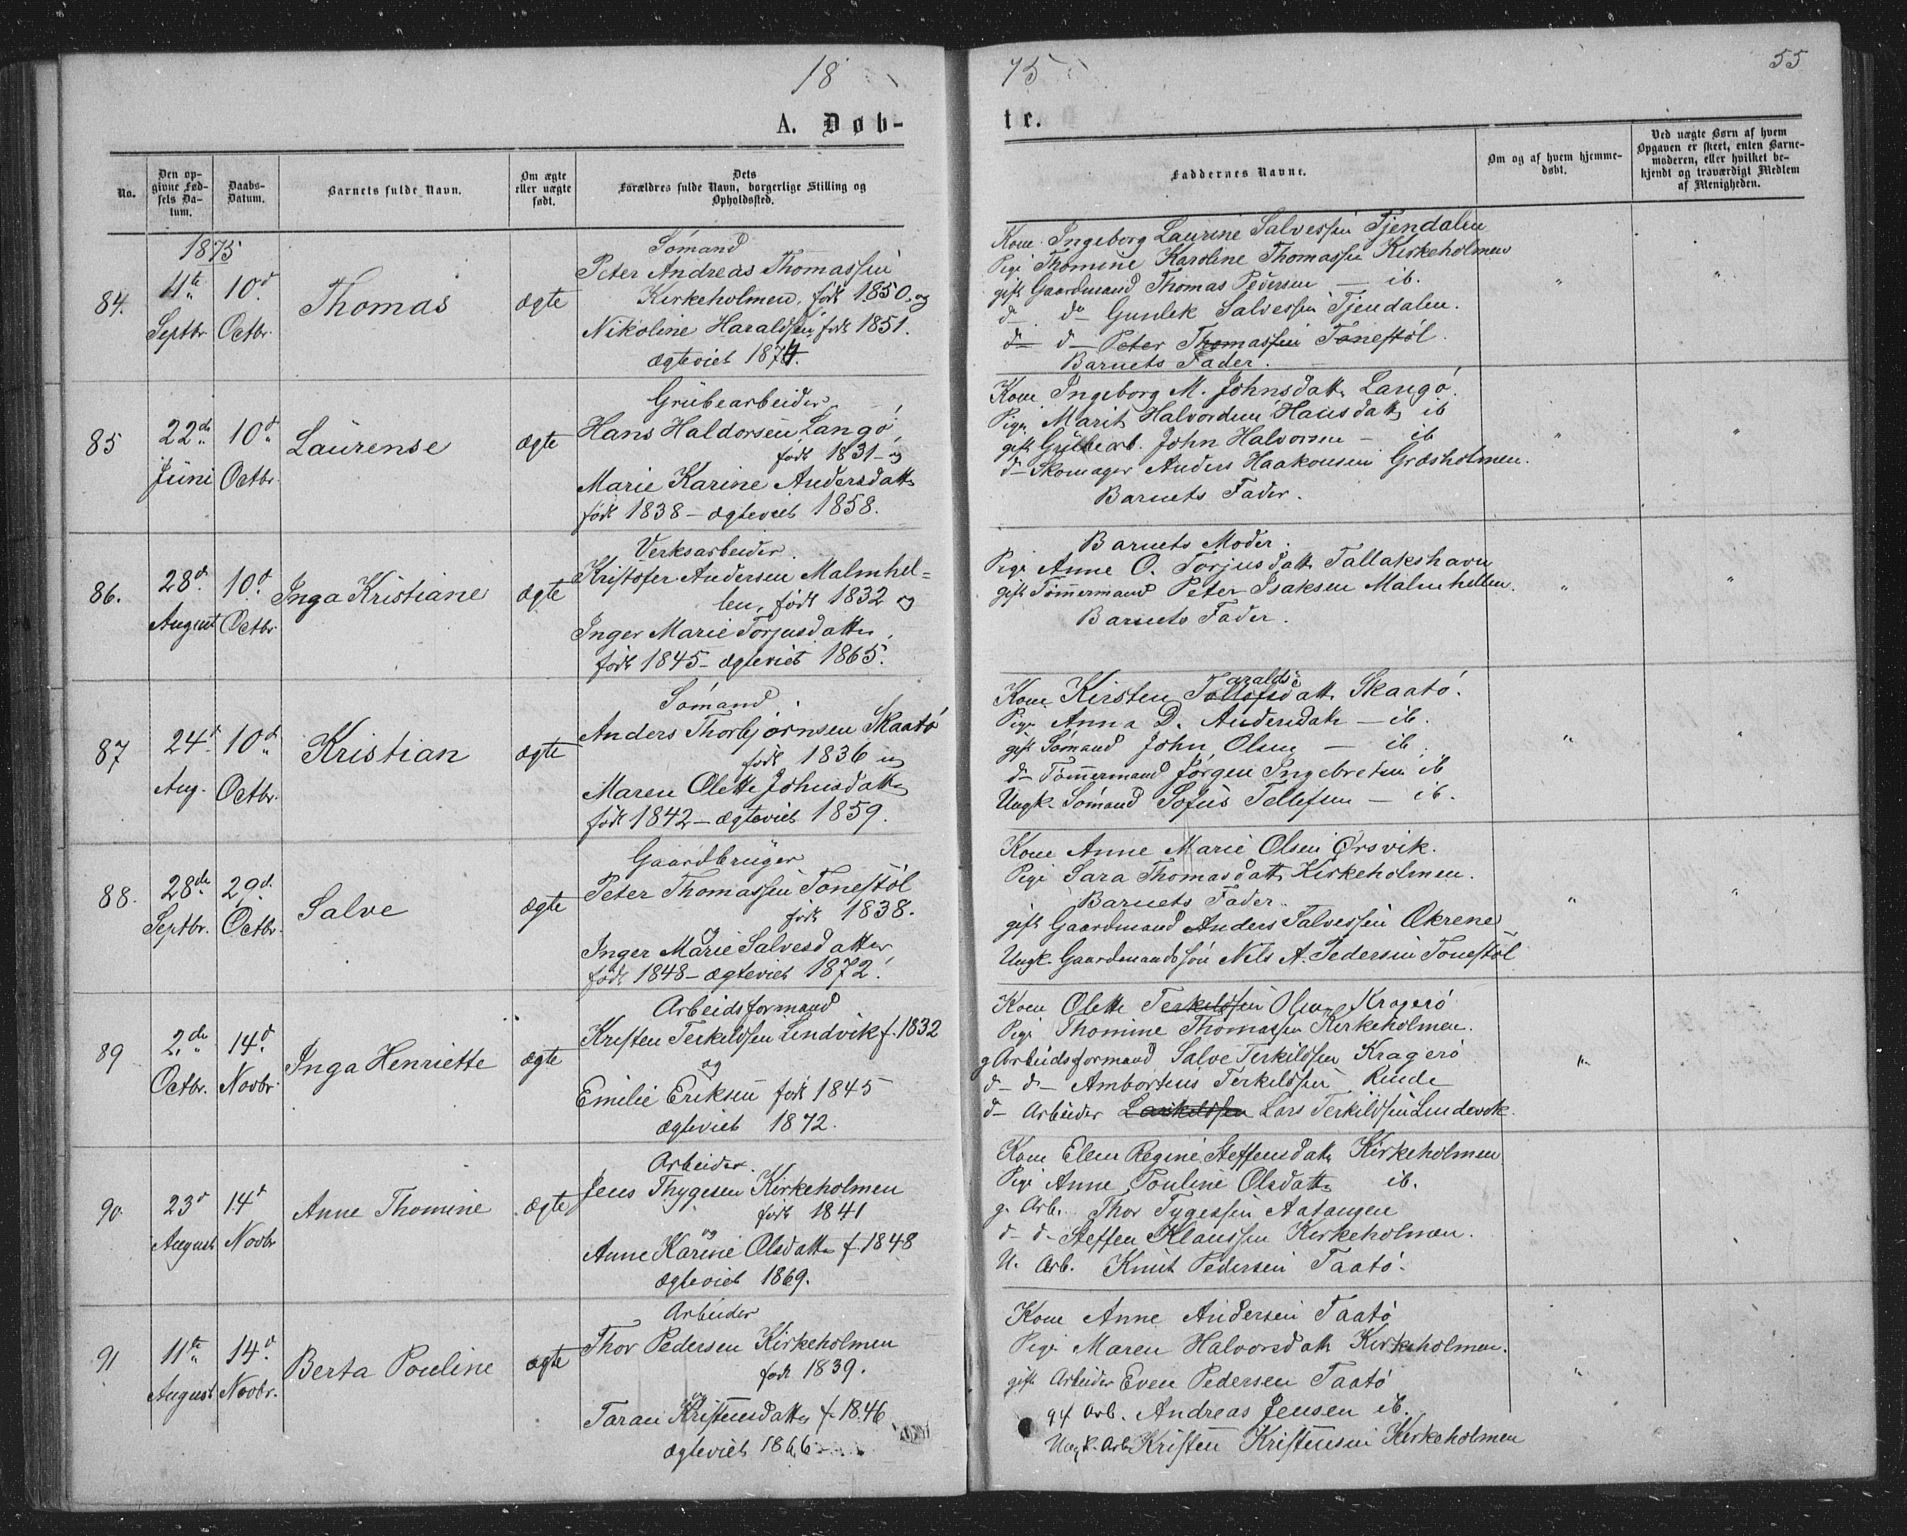 18
75
55
A. Døb-
te.
No.
Den op-
givne Fød-
sels Da-
tum.
Daabs-
Datum.
Barnets fulde Navn.
Om ægte
eller uægte
født.
Dets
Forældres fulde Navn, borgerlige Stilling og
Opholdssted.
Faddernes Navne.
Om og af hvem hjemme-
døbt.
Ved uægte Børn af hvem
Opgaven er skeet, enten Barne-
moderen, eller hvilket be-
kjendt og troværdigt Medlem
af Menigheden.
1875
84.
11te
Septbr.
10d
Octbr.
Thomas
ægte
Sømand
Peter Andreas Thomassen
Kirkeholmen, født 1850, og
Nikoline Haraldsen, født 1851.
ægteviet 1874.
Kone Ingeborg Laurine Salvessen Tjendalen
Pige Thomine Karoline Thomassen Kirkeholmen
gift Gaardmand Thomas Pedersen — ib.
d— do Gunlek Salvessen Tjendalen.
d— d— Peter Thomassen Tonestøl.
Barnets Fader.
85
22de
Juni
10d
Octbr.
Laurense
ægte
Grubearbeider
Hans Haldorsen Langø,
født 1831 - og
Marie Karine Andersdatter
født 1838 - ægteviet 1858.
Kone Ingeborg M. Johnsdatt. Langø.
Pige Marit Hansdatt ib
gift Grubearb. John Halvorsen — ib
d— Skomager Anders Haakonsen Græsholmen.
Barnets Fader.
86.
28d
August
10d
Octbr.
Inga Kristiane
ægte
Verksarbeider.
Kristofer Andersen Malmhel-
len, født 1832 og
Inger Marie Torjusdatter,
født 1845 - ægteviet 1865.
Barnets Moder.
Pige Anne O. Torjusdatt Tallakshavn
gift Tømmermand Peter Isaksen Malmhellen.
Barnets Fader.
87
24d
Aug.
10d
Octbr.
Kristian
ægte
Sømand.
Anders Thorbjørnsen Skaatø
født 1836 og
Maren Olette Johnsdatter
født 1842 - ægteviet 1859.
Kone Kirsten Taraldsdatt. Skaatø.
Pige Anna D. Andersdatt — ib.
gift Sømand John Olsen — ib.
d— Tømmermand Jørgen Ingebretsen ib
Ungk. Sømand Sofus Tellefsen — ib.
88.
28de
Septbr.
29d.
Octbr.
Salve
ægte
Gaardbruger
Peter Thomassen Tonestøl
født 1838.
og
Inger Marie Salvesdatter
født 1848 - ægteviet 1872.
Kone Anne Marie Olsen Ørsvik.
Pige Sara Thomasdatt Kirkeholmen.
Barnets Fader.
gift Gaardmand Anders Salvessen Økrene
Ungk. Gaardmandssøn Nils A. Pedersen Tonestøl
89
2den
Octbr.
14d
Novbr.
Inga Henriette
ægte
Arbeidsformand
Kristen Terkildsen Lindvik f. 1832
og
Emilie Eriksen født 1845
ægteviet 1872.
Kone Olette Terkildsen Olsen Kragerø
Pige Thomine Thomassen Kirkeholmen.
g Arbeidsformand Salve Terkildsen Kragerø
d— d— Ambortius Terkildsen Rinde
d— Arbeider Lars Terkildsen Lindevik.
90.
23d
August
14d
Novbr
Anne Thomine
ægte
Arbeider.
Jens Thygesen Kirkeholmen
født 1841
og
Anne Karine Olsdatter f. 1848
ægteviet 1869.
Kone Ellen Regine Steffensdatt Kirkeholmen
Pige Anne Pouline Olsdatter ib.
g. Arb. Thor Tygessen Aatangen
d— d— Steffen Klaussen Kirkeholmen.
U. Arb. Knut Pedersen Taatø.
91
11te
August
14d
Novbr.
Berta Pouline
ægte
Arbeider
Thor Pedersen Kirkeholmen
født 1839.
og
Taran Kristensdatter f. 1846
ægteviet 1866
Kone Anne Andersen Taatø
Pige Maren Halvorsdatt Kirkeholmen.
gift Arbeider Even Pedersen Taatø
gft Arb. Andreas Jensen ib.
Ungk. Arb Kristen Kristensen Kirkeholmen